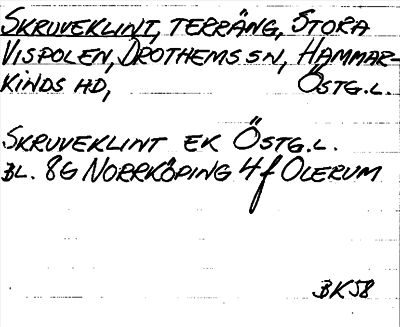 SKRUVEKLINT, TERRÄNG, STORA
VISPOLEN, DROTHEMS SN, HAMMAR-
KINDS HD, ÖSTG.L.
SKRUVEKLINT EK ÖSTG.L.
BL. 8G NORRKÖPING 4f OLERUM
BK58